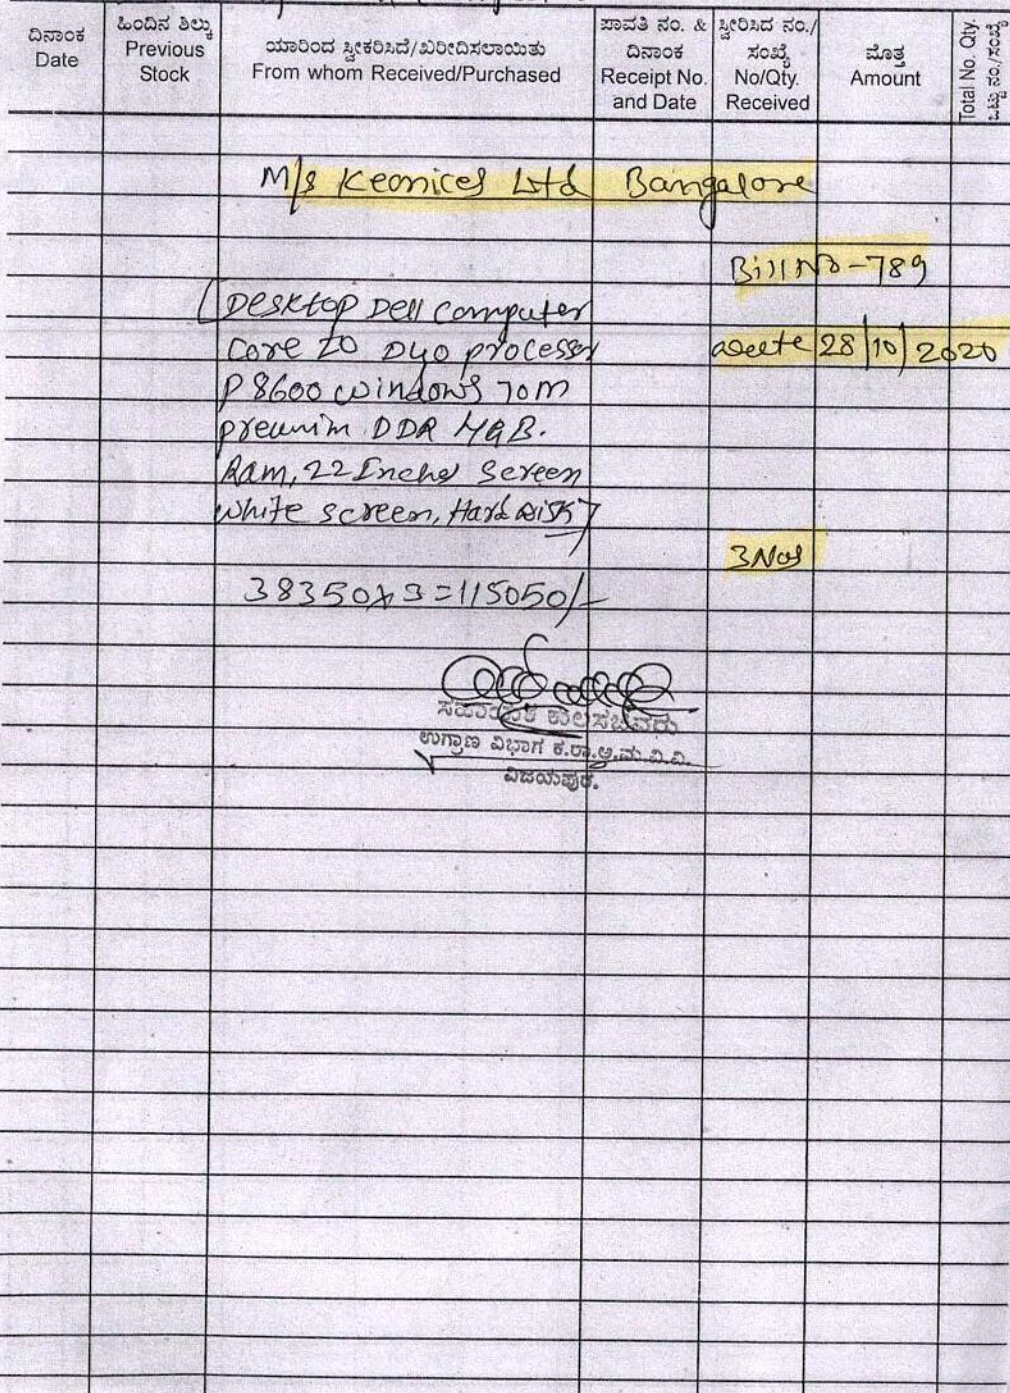 ದಿನಾಂಕ
Date
ಹಿಂದಿನ ಶಿಲ್ಕು
Previous
Stock
ಯಾರಿಂದ ಸ್ವೀಕರಿಸಿದೆ/ಖರೀದಿಸಲಾಯಿತು
From whom Received/Purchased
ಪಾವತಿ ನಂ. &
ದಿನಾಂಕ
Receipt No.
and Date
ಸ್ವೀರಿಸಿದ ನಂ./
ಸಂಖ್ಯೆ
No/Qty.
Received
ಮೊತ್ತ
Amount
Total No. Qty.
ಒಟ್ಟು ನಂ./ಸಂಖ್ಯೆ
M/s Keonices Ltd Bangalore
Bill No-789
[Desktop Dell computer
Core 20 Duo processer
28/10/2020
P8600 windows 70m
DDR 4GB.
Ram, 22 Inches Screen
white screen, Hard Disk]
3Nos
38350x3=115050/-
ಉಗ್ರಾಣ ವಿಭಾಗ ಕ.ರಾ.ಅ.ಮ.ವಿ.ವಿ.
ವಿಜಯಪುರ.